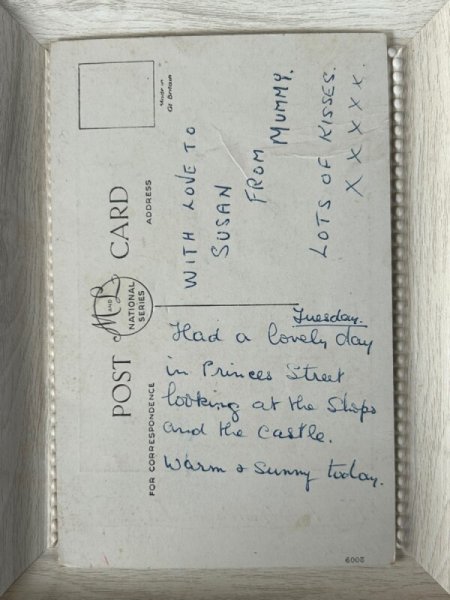 POST CARD
M AND L
NATIONAL
SERIES
FOR CORRESPONDENCE
ADDRESS
Made in
Gt Britain
Tuesday.
Had a lovely day
in Princes Street
looking at the Shops
and the castle.
Warm & Sunny today.
WITH LOVE TO
SUSAN
FROM
MUMMY.
LOTS OF KISSES.
X X X X X X.
5009